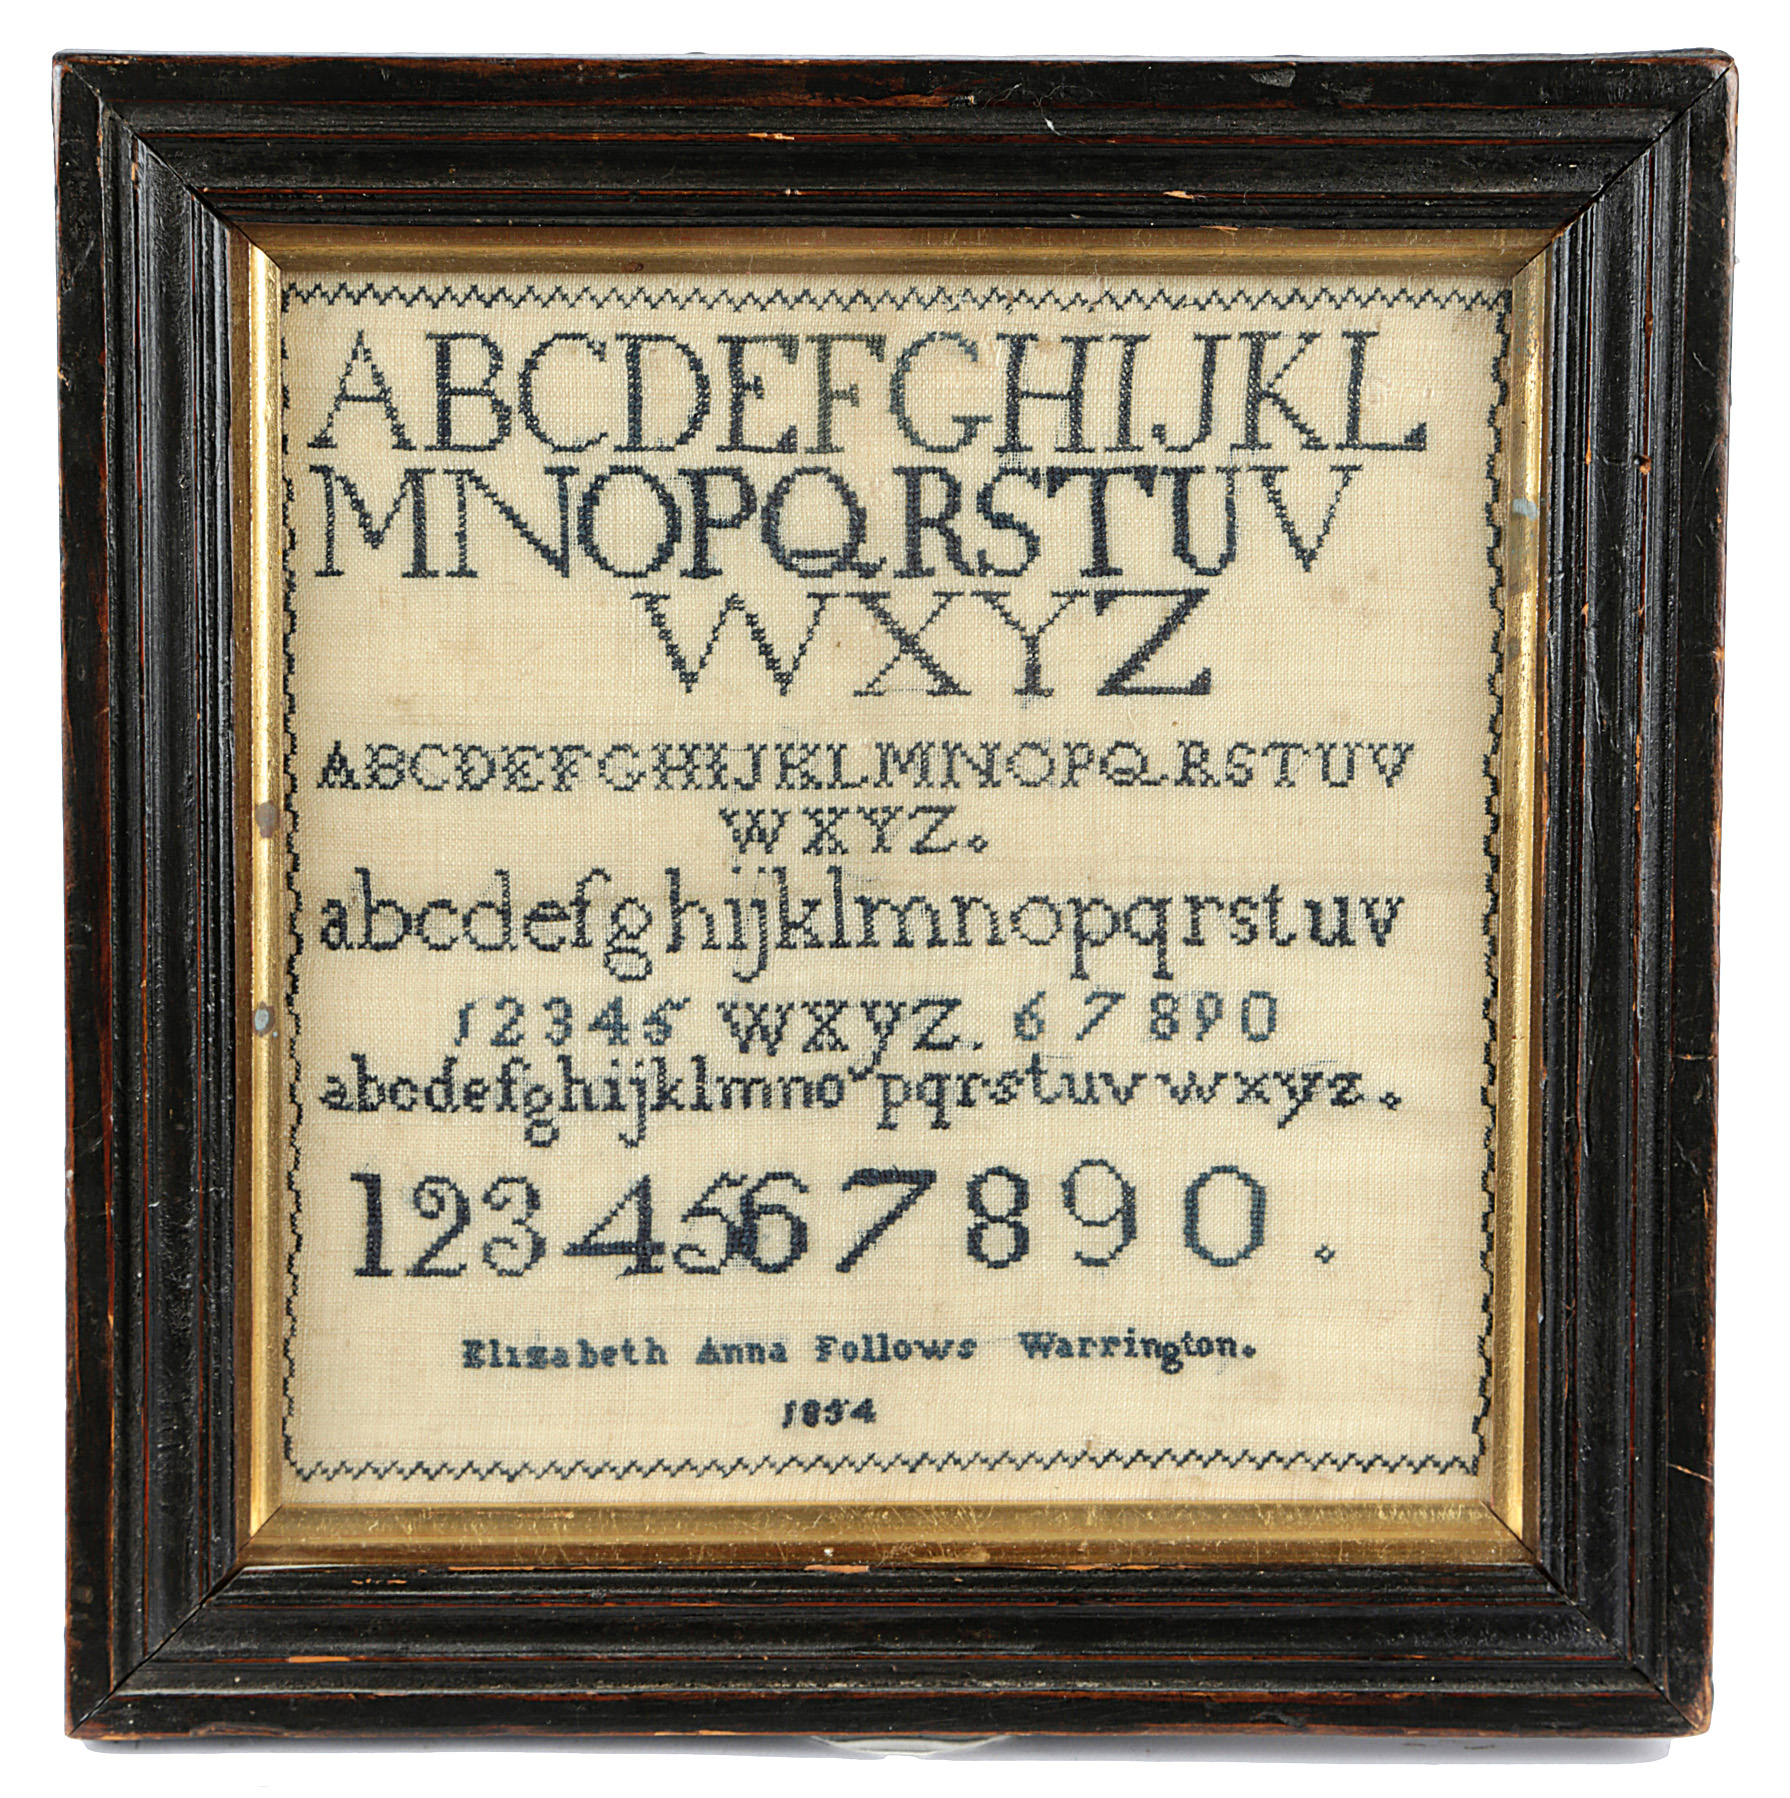 ABCDEFGHIJKL
MNOPQRSTUV
WXYZ
ABCDEFGHIJKLMNOPQRSTUV
WXYZ.
abcdefghijklmnopqrstuv
12345 wxyz. 67890
abcdefghijklmno pqrstuvwxyz.
1234567890.
Elizabeth Anna Follows Warrington.
1854